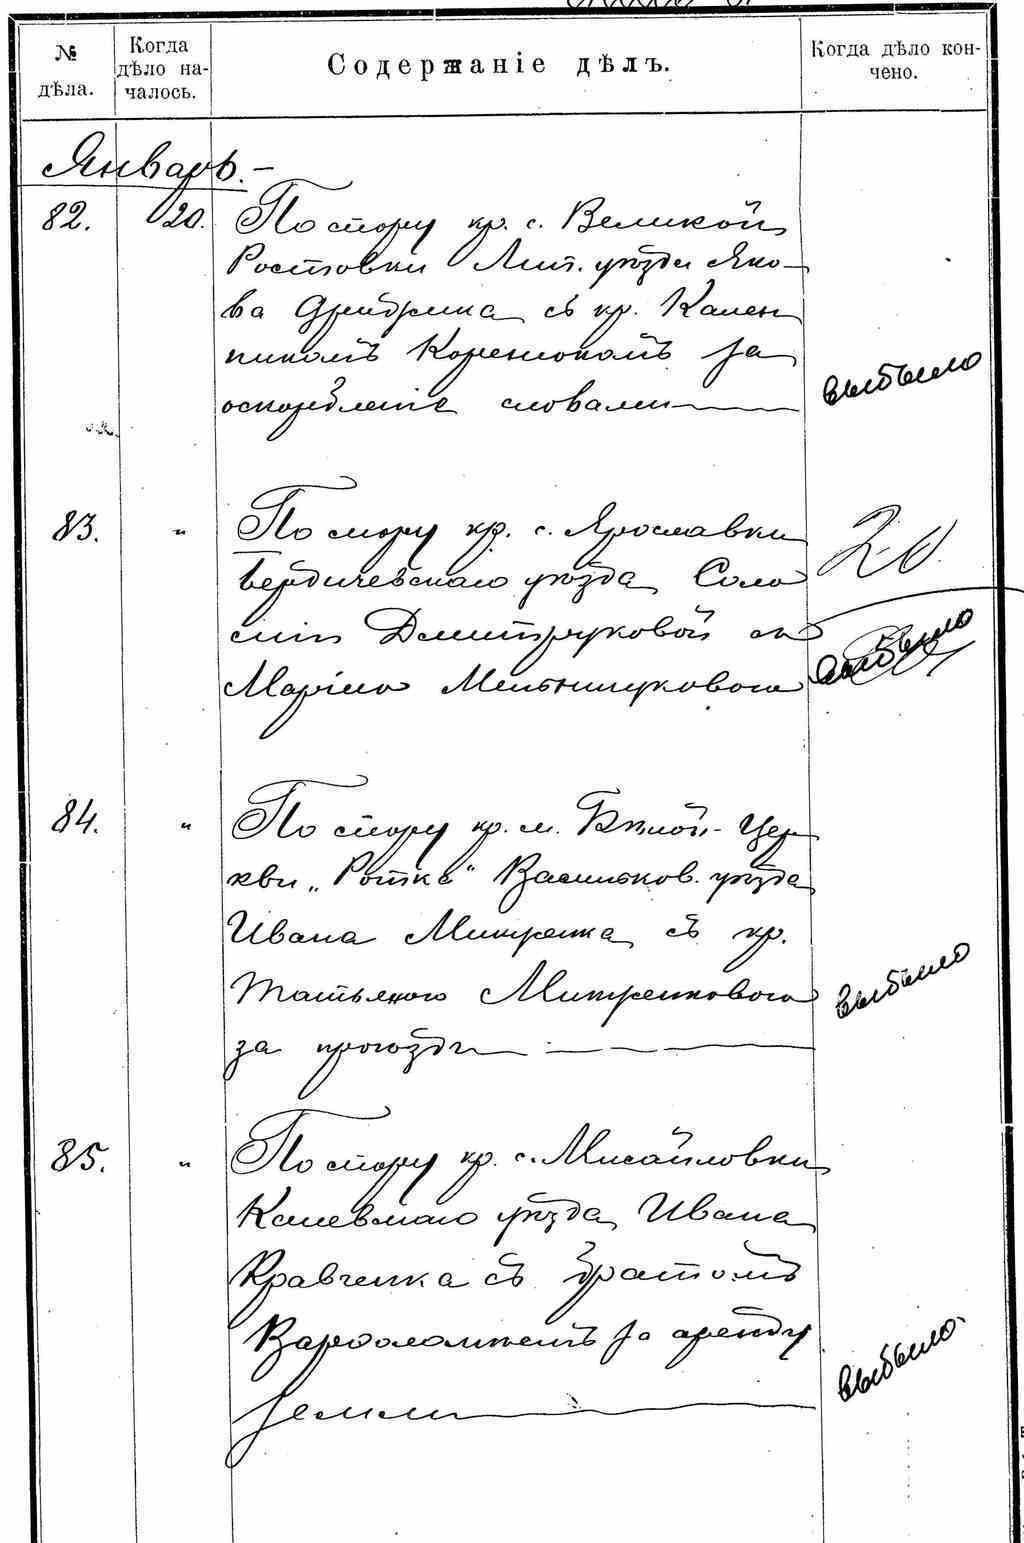 № дѣла.
Когда дѣло началось.
Содержаніе дѣлъ.
Когда дѣло кончено.
Январь.-
82. 20. По спору кр. с. Великой
Ростовки Лип. уѣзда Яко-
ва с кр. Кален
никомъ Коренюкомъ за
оскорбленіе словами
выбыло
83. " По спору кр. с. Ярославки
Бердичевскаго уѣзда Соло
міи Дмитруковой съ
Маріею Мельничуковою
20
выбыло
84. " По спору кр. м. Бѣлой-Цер
кви „Ротка“ Васильков. уѣзда
Ивана Митренка съ кр.
Татьяною Митренковою
за
выбыло
85. " По спору кр. с. Михайловки
Каневскаго уѣзда Ивана
Кравченка съ братомъ
Варфоломѣемъ за аренду
земли
выбыло.